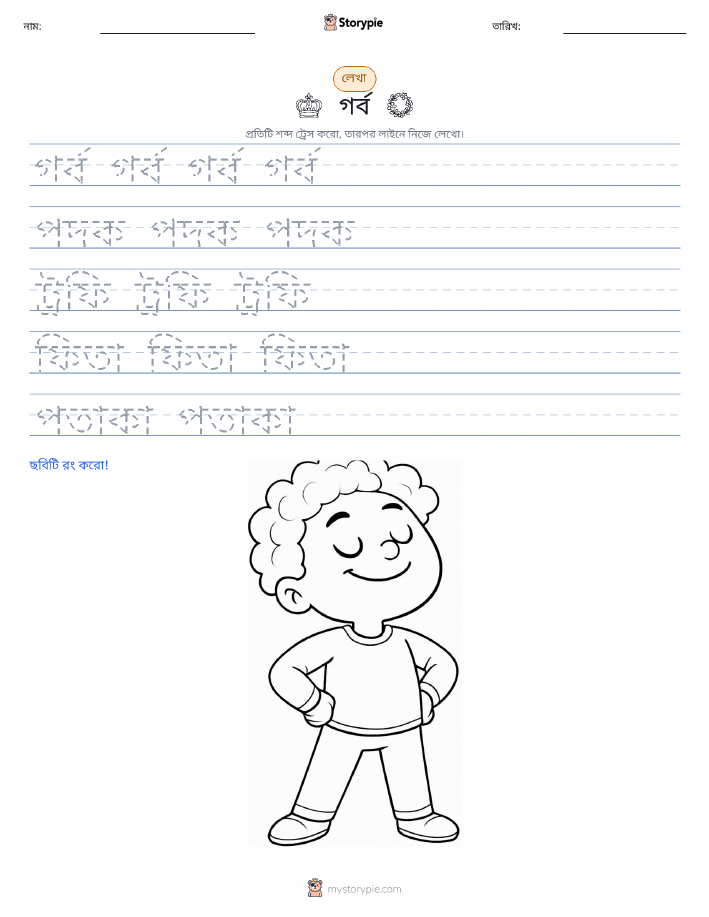 নাম: Storypie তারিখ:
লেখা
গর্ব
প্রতিটি শব্দ ট্রেস করো, তারপর লাইনে নিজে লেখো।
গর্ব গর্ব গর্ব গর্ব
পদক পদক পদক
ট্রফি ট্রফি ট্রফি
ফিতা ফিতা ফিতা
পতাকা পতাকা
ছবিটি রং করো!
mystorypie.com